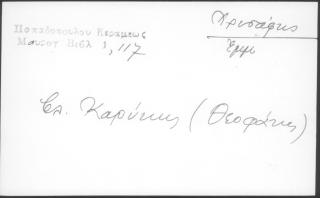 Παπαδοπούλου Κεραμεως
Μαυρογ Βιβλ 1, 117
Χρυσάφης
Ἐρμ
Βλ. Καρύκης (Θεοφάνης)